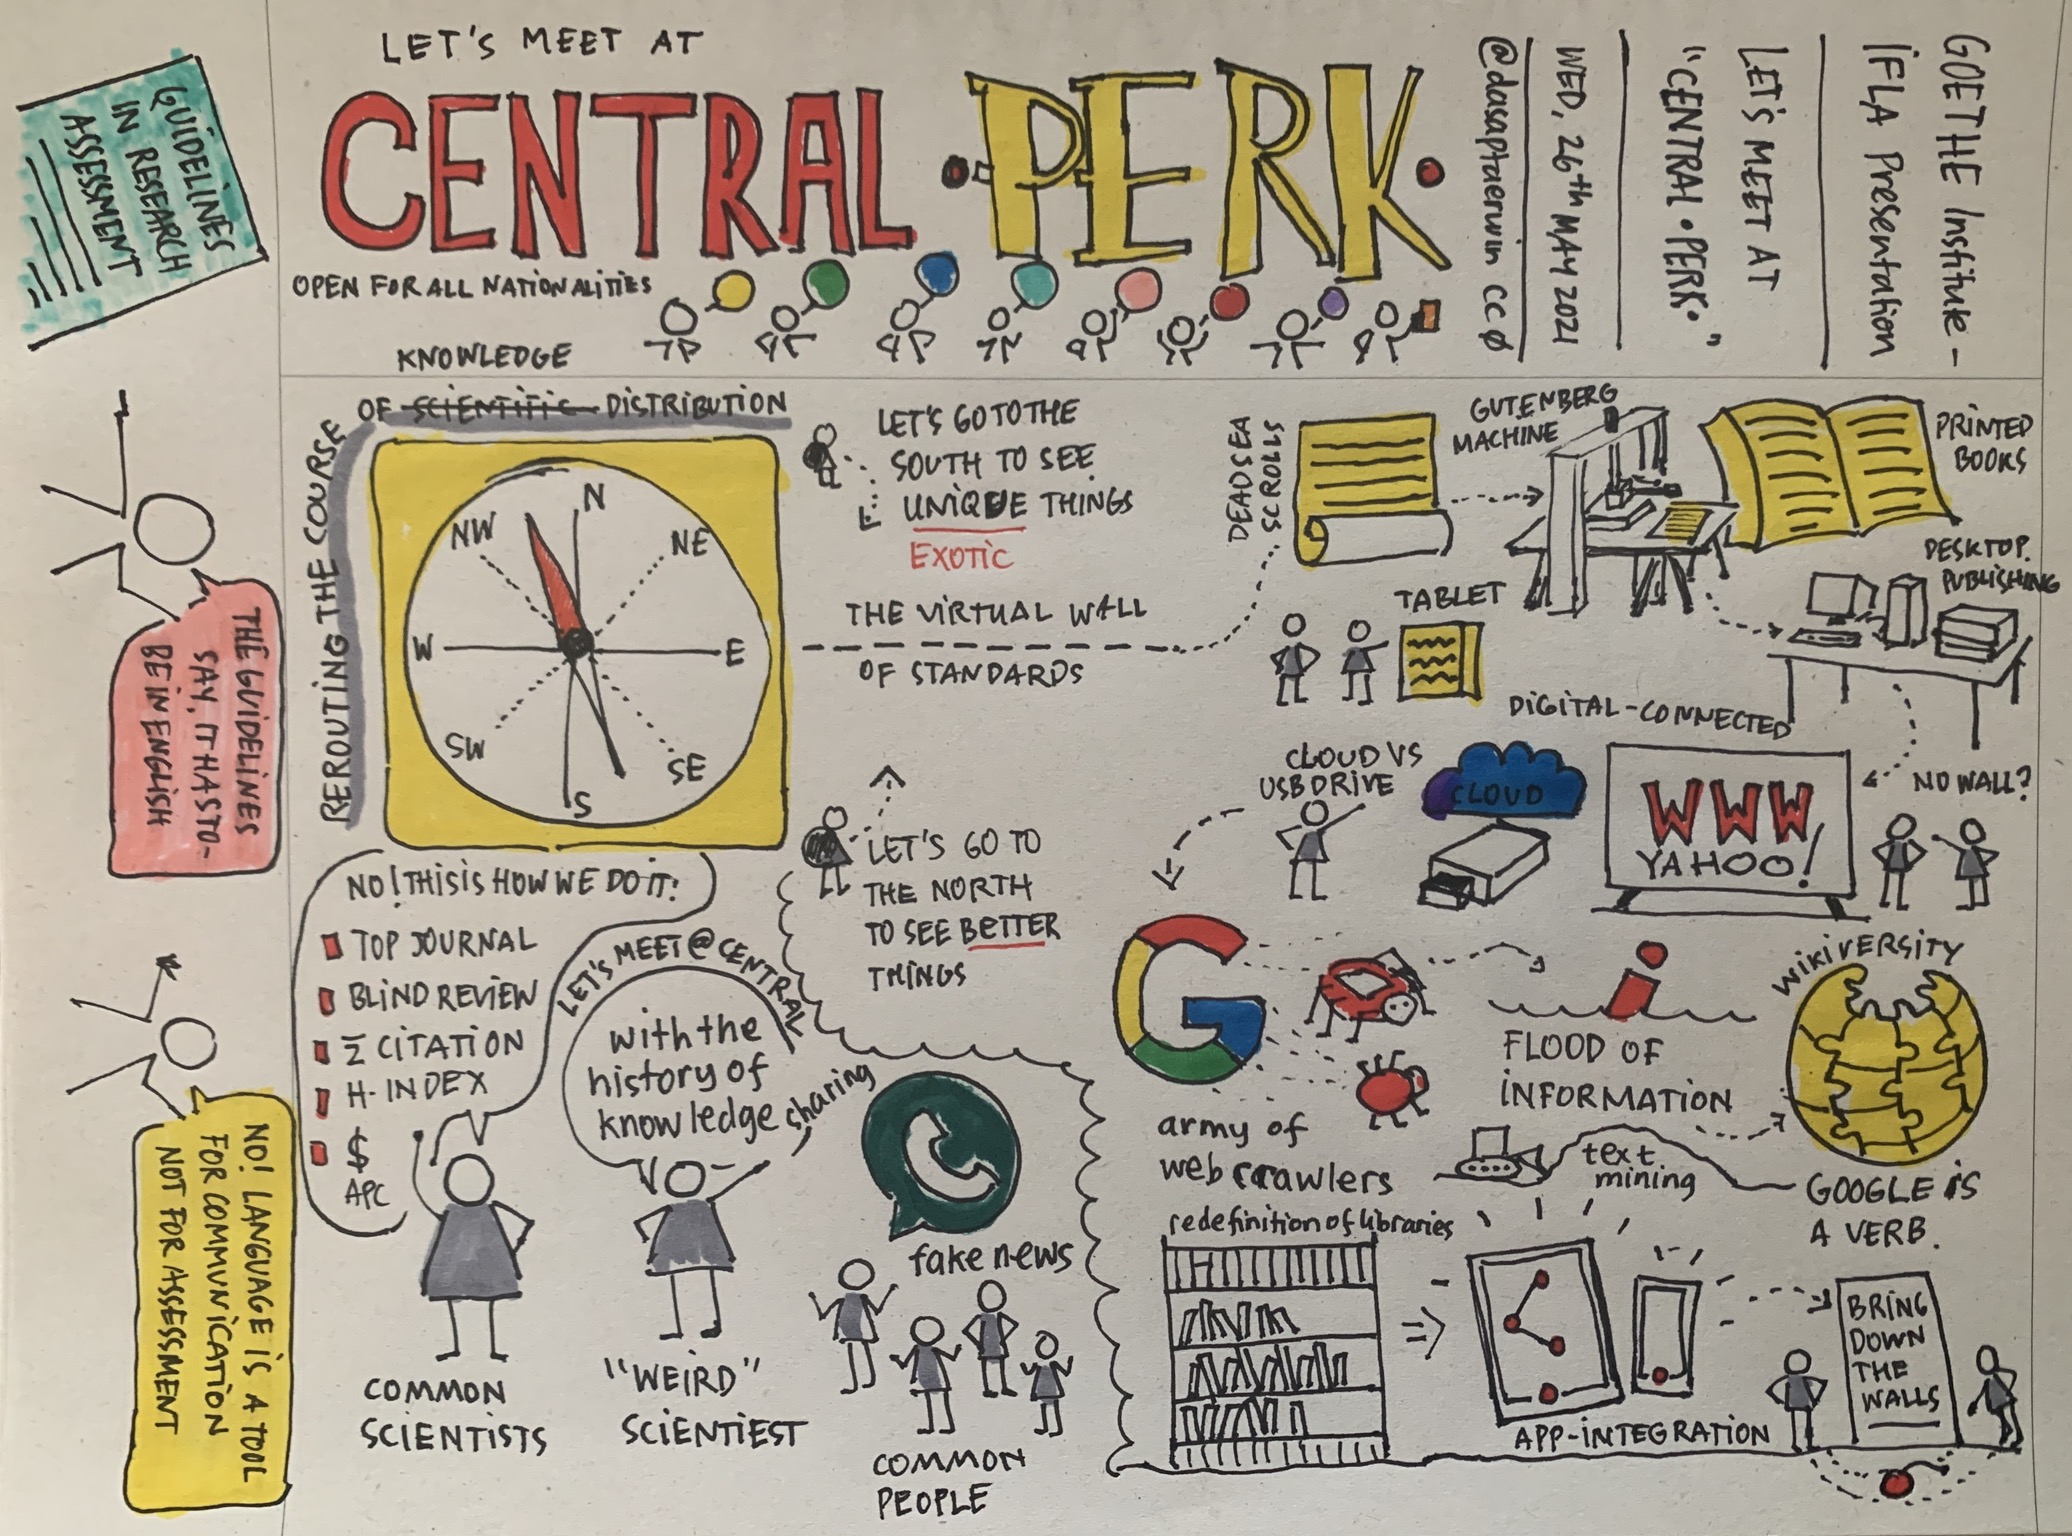 LET'S MEET AT
CENTRAL • PERK •
OPEN FOR ALL NATIONALITIES
GOETHE Institute -
IFLA Presentation
LET'S MEET AT
"CENTRAL • PERK • "
WED, 26th MAY 2021
@dasaptaerwin CC Ø
GUIDELINES
IN RESEARCH
ASSESSMENT
THE GUIDELINES
SAY, IT HAS TO-
BE IN ENGLISH
NO! LANGUAGE IS A TOOL
FOR COMMUNICATION
NOT FOR ASSESSMENT
REROUTING THE COURSE
KNOWLEDGE
OF SCIENTIFIC DISTRIBUTION
N
NE
E
SE
S
SW
W
NW
LET'S GO TO THE
SOUTH TO SEE
UNIQUE THINGS
EXOTIC
THE VIRTUAL WALL
OF STANDARDS
LET'S GO TO
THE NORTH
TO SEE BETTER
THINGS
NO! THIS IS HOW WE DO IT!
TOP JOURNAL
BLIND REVIEW
Σ CITATION
H-INDEX
$
APC
COMMON
SCIENTISTS
LET'S MEET @ CENTRAL
with the
history of
knowledge sharing
"WEIRD"
SCIENTIEST
fake news
COMMON
PEOPLE
DEADSEA
SCROLLS
GUTENBERG
MACHINE
PRINTED
BOOKS
DESKTOP
PUBLISHING
TABLET
DIGITAL-CONNECTED
NO WALL?
WWW
YAHOO!
CLOUD VS
USB DRIVE
CLOUD
G
army of
web crawlers
i
FLOOD OF
INFORMATION
WIKIVERSITY
text
mining
GOOGLE IS
A VERB.
redefinition of libraries
APP-INTEGRATION
BRING
DOWN
THE
WALLS